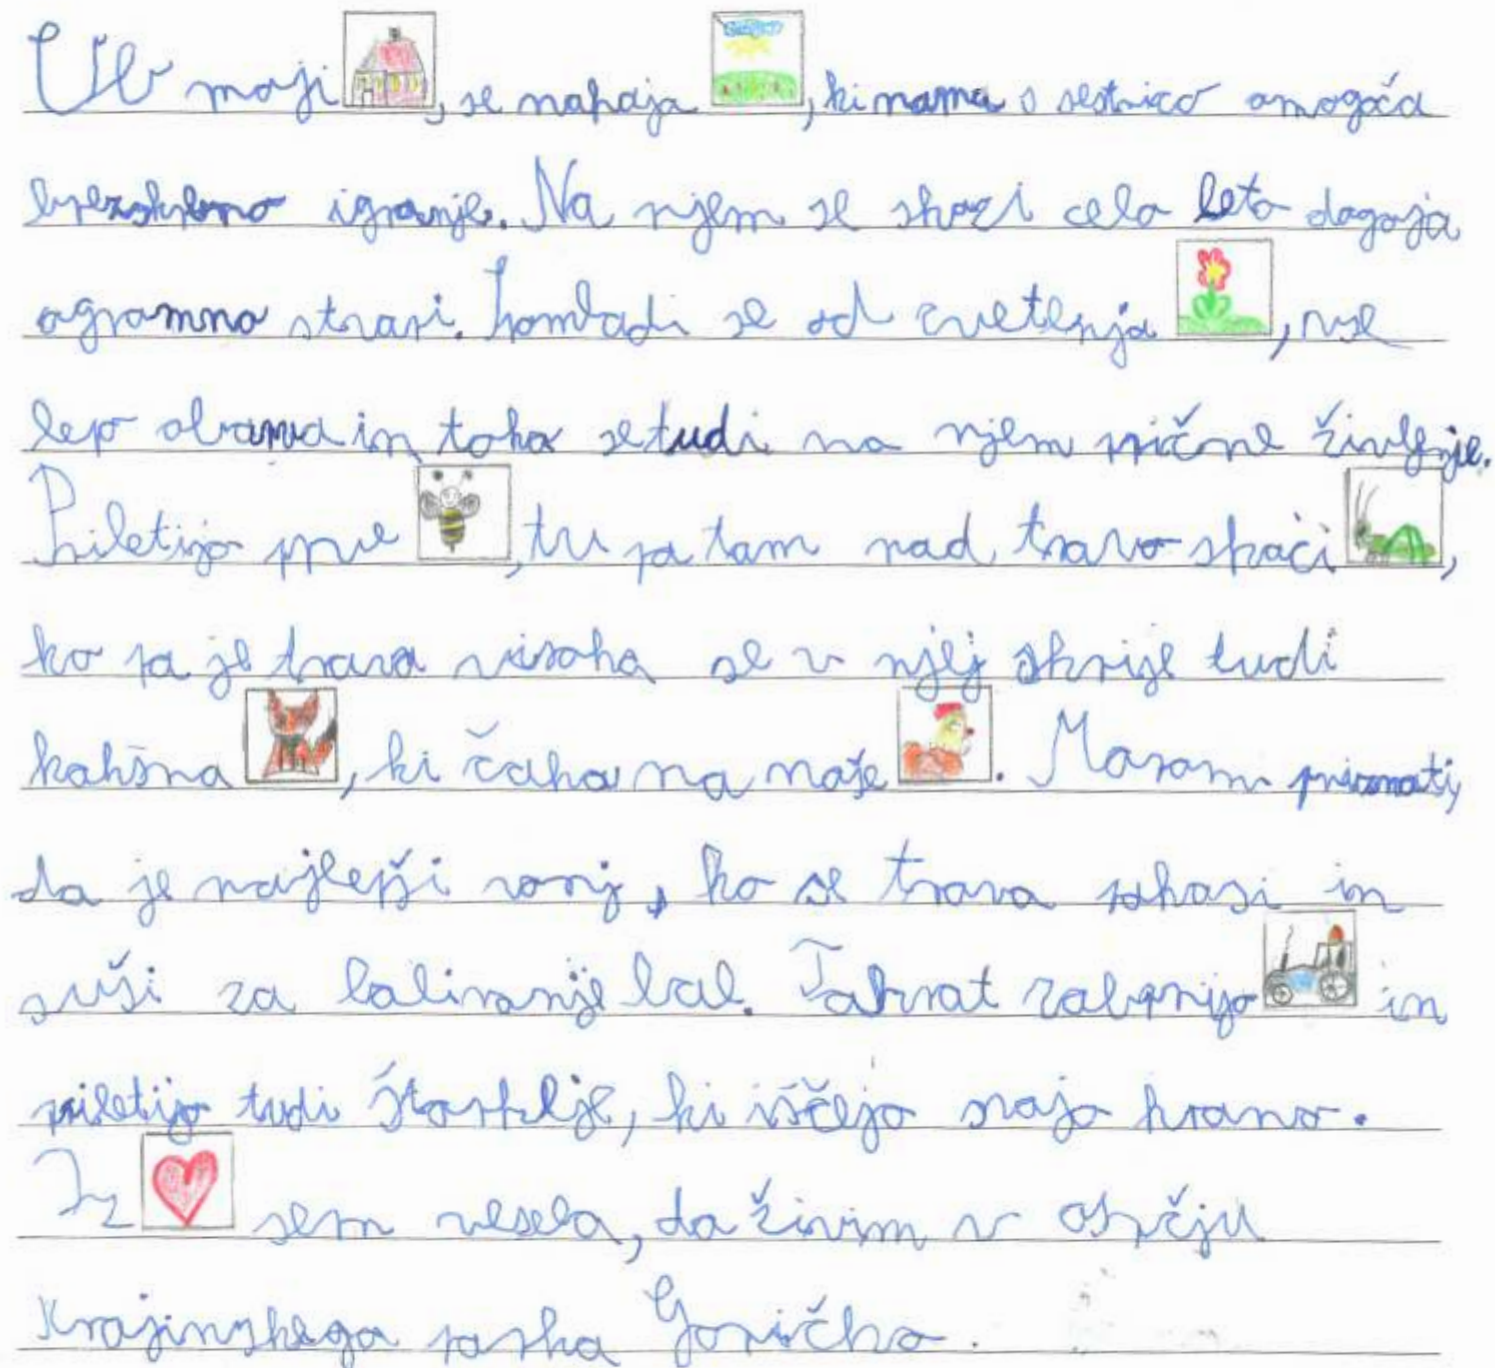 Ob moji , se nahaja , ki nama s sestrico omogoča
brezskrbno igranje. Na njem se skozi celo leto dogaja
ogromno stvari. Pomladi se od cvetenja , vse
lepo obarva in tako se tudi na njem prične življenje.
Priletijo prve , tu pa tam nad travo skoči ,
ko pa je trava visoka se v njej skrije tudi
kakšna , ki čaka na naše . Moram priznati,
da je najlepši vonj, ko se trava pokosi in
suši za baliranje bal. Takrat zabrnijo in
priletijo tudi štorklje, ki iščejo svojo hrano.
Iz sem vesela, da živim v osrčju
Krajinskega parka Goričko.